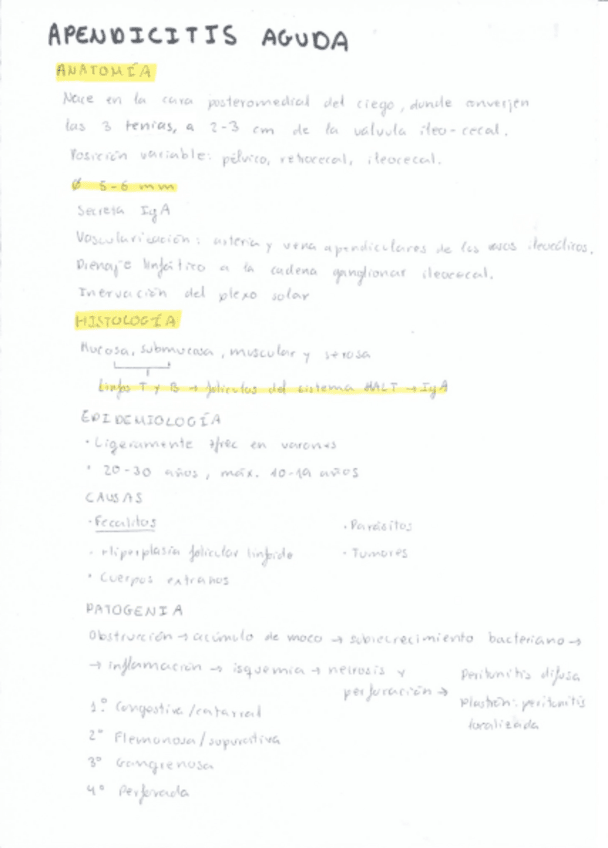 APENDICITIS AGUDA
ANATOMÍA
Nace en la cara posteromedial del ciego, donde convergen
las 3 tenias, a 2-3 cm de la válvula íleo-cecal.
Posición variable: pélvico, retrocecal, ileocecal.
Ø 5-6 mm
Secreta IgA
Vascularización: arteria y vena apendiculares de los vasos ileocólicos.
Drenaje linfático a la cadena ganglionar ileocecal.
Inervación del plexo solar
HISTOLOGÍA
Mucosa, submucosa, muscular y serosa
Linfos T y B → folículos del sistema MALT → IgA
EPIDEMIOLOGÍA
· Ligeramente +frec en varones
· 20-30 años, máx. 10-19 años
CAUSAS
· Fecalitos
· Parásitos
· Hiperplasia folicular linfoide
· Tumores
· Cuerpos extraños
PATOGENIA
Obstrucción → acúmulo de moco → sobrecrecimiento bacteriano →
→ inflamación → isquemia → necrosis y
perforación →
Peritonitis difusa
Plastrón: peritonitis
localizada
1º Congestiva/catarral
2º Flemonosa/supurativa
3º Gangrenosa
4º Perforada